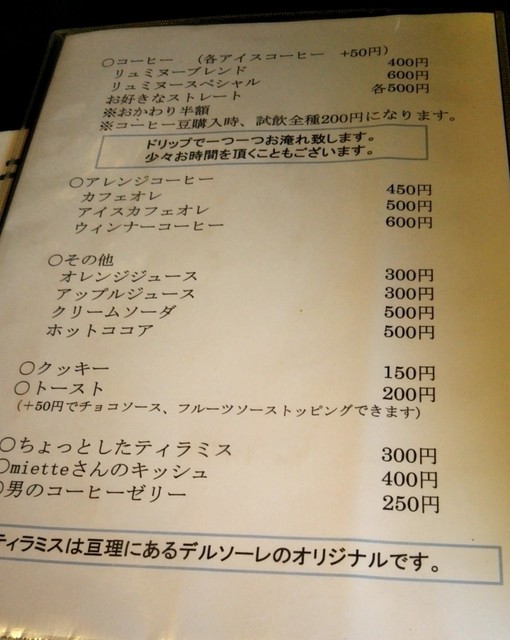 ○コーヒー （各アイスコーヒー +50円）
リュミヌーブレンド 400円
リュミヌースペシャル 600円
お好きなストレート 各500円
※おかわり半額
※コーヒー豆購入時、試飲全種200円になります。
ドリップで一つ一つお淹れ致します。
少々お時間を頂くこともございます。
○アレンジコーヒー
カフェオレ 450円
アイスカフェオレ 500円
ウィンナーコーヒー 600円
○その他
オレンジジュース 300円
アップルジュース 300円
クリームソーダ 500円
ホットココア 500円
○クッキー 150円
○トースト 200円
（+50円でチョコソース、フルーツソーストッピングできます）
○ちょっとしたティラミス 300円
○mietteさんのキッシュ 400円
○男のコーヒーゼリー 250円
ティラミスは亘理にあるデルソーレのオリジナルです。